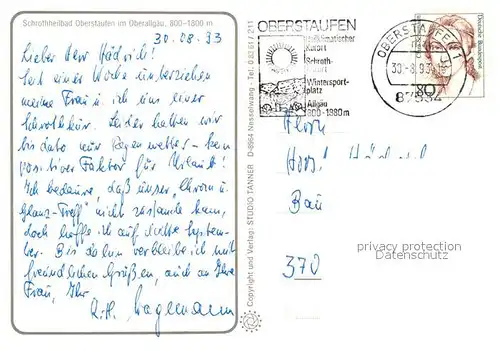 Schrothheilbad Oberstaufen im Oberallgäu, 800-1800 m
30.08.93
Lieber Herr
Seit einer Woche unterziehen
meine Frau u. ich uns einer
Schrothkur. Leider hatten wir
bis dato nur Regenwetter - kein
positiver Faktor für Urlaub!
Ich bedaure, daß unser "Chrom u.
Glanz-Treff" nicht zustande kam,
doch hoffe ich auf Mitte Septem-
ber. Bis dahin verbleibe ich mit
freundlichen Grüßen, auch an Ihre
Frau, Ihr
Copyright und Verlag: STUDIO TANNER D-8964 Nesselwang - Tel. 0 83 61 / 2 11
OBERSTAUFEN
heilklimatischer
Kurort
Schroth-
kurort
Wintersport-
platz
Allgäu
800-1880m
OBERSTAUFEN 1
30.-8.93
87534
Deutsche Bundespost
80
Herrn
Horst
370
privacy protection
Datenschutz